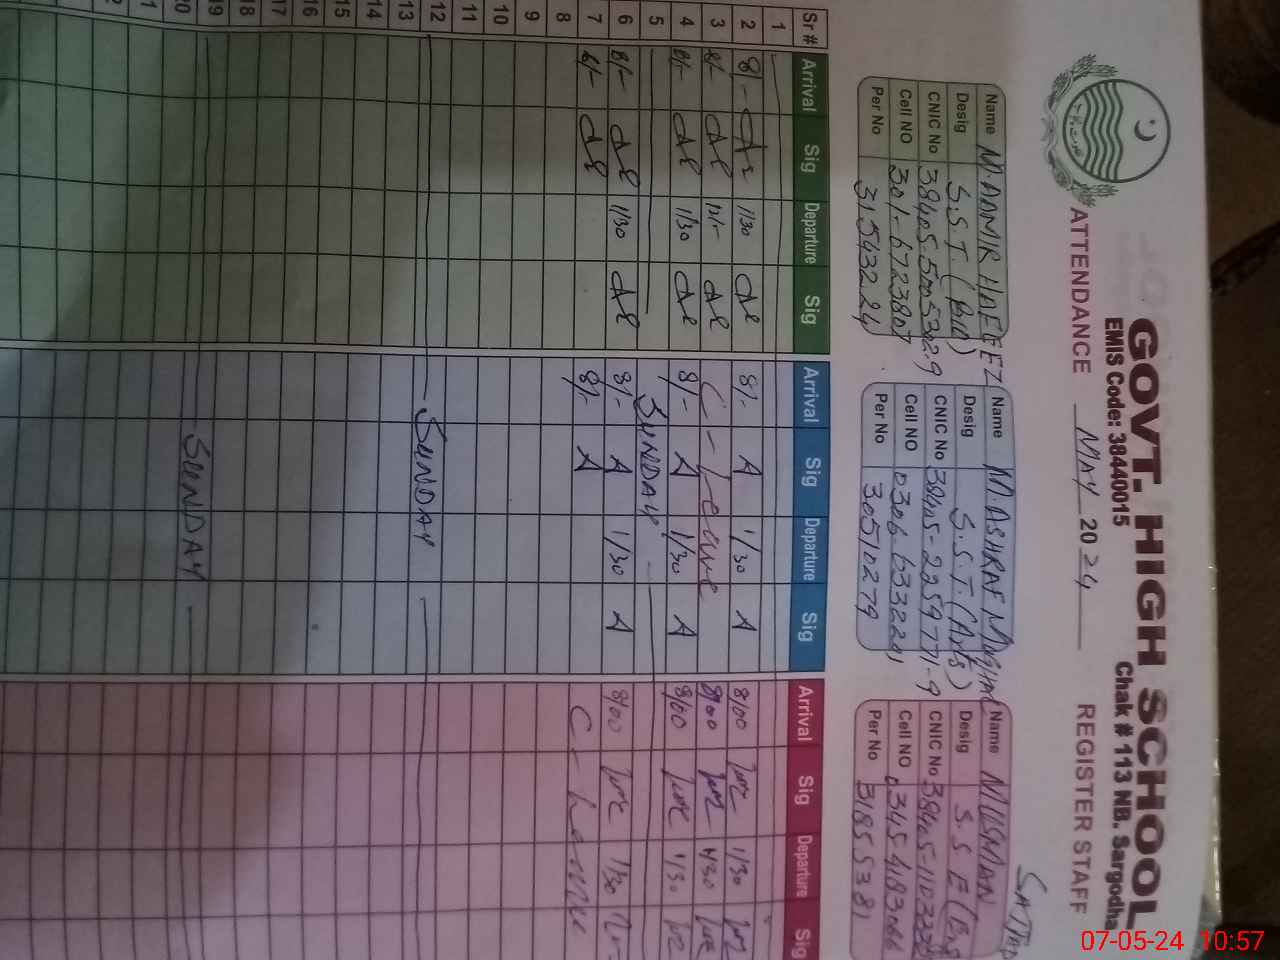 GOVT. HIGH SCHOOL
EMIS Code: 38440015 Chak # 113 NB. Sargodha
ATTENDANCE MAY 2024 REGISTER STAFF
Name M. AAMIR HAFEEZ
Desig S.S.T (Bio)
CNIC No
Cell NO 301-6723807
Per No 31543224
Name M. ASHRAF MUGHAL
Desig S.S.T. (Arts)
CNIC No 38405-2259771-9
Cell NO 0306 6332201
Per No 30510279
Name M USMAN SATTAR
Desig S. S. E
CNIC No
Cell NO 0345 4183066
Per No 31855381
Sr # Arrival Sig Departure Sig Arrival Sig Departure Sig Arrival Sig Departure Sig
1
2 8/- 1/30 8/- A 1/30 A 8/00 1/30
3 8/- 12/- C - Leave 8/00 1/30
4 8/- 1/30 8/- A 1/30 A 8/00 1/30
5 SUNDAY
6 8/- 1/30 8/- A 1/30 A 8/00 1/30
7 8/- 8/- A C - Leave
8
9
10
11
12 SUNDAY
13
14
15
16
17
18
19 SUNDAY
20
07-05-24 10:57